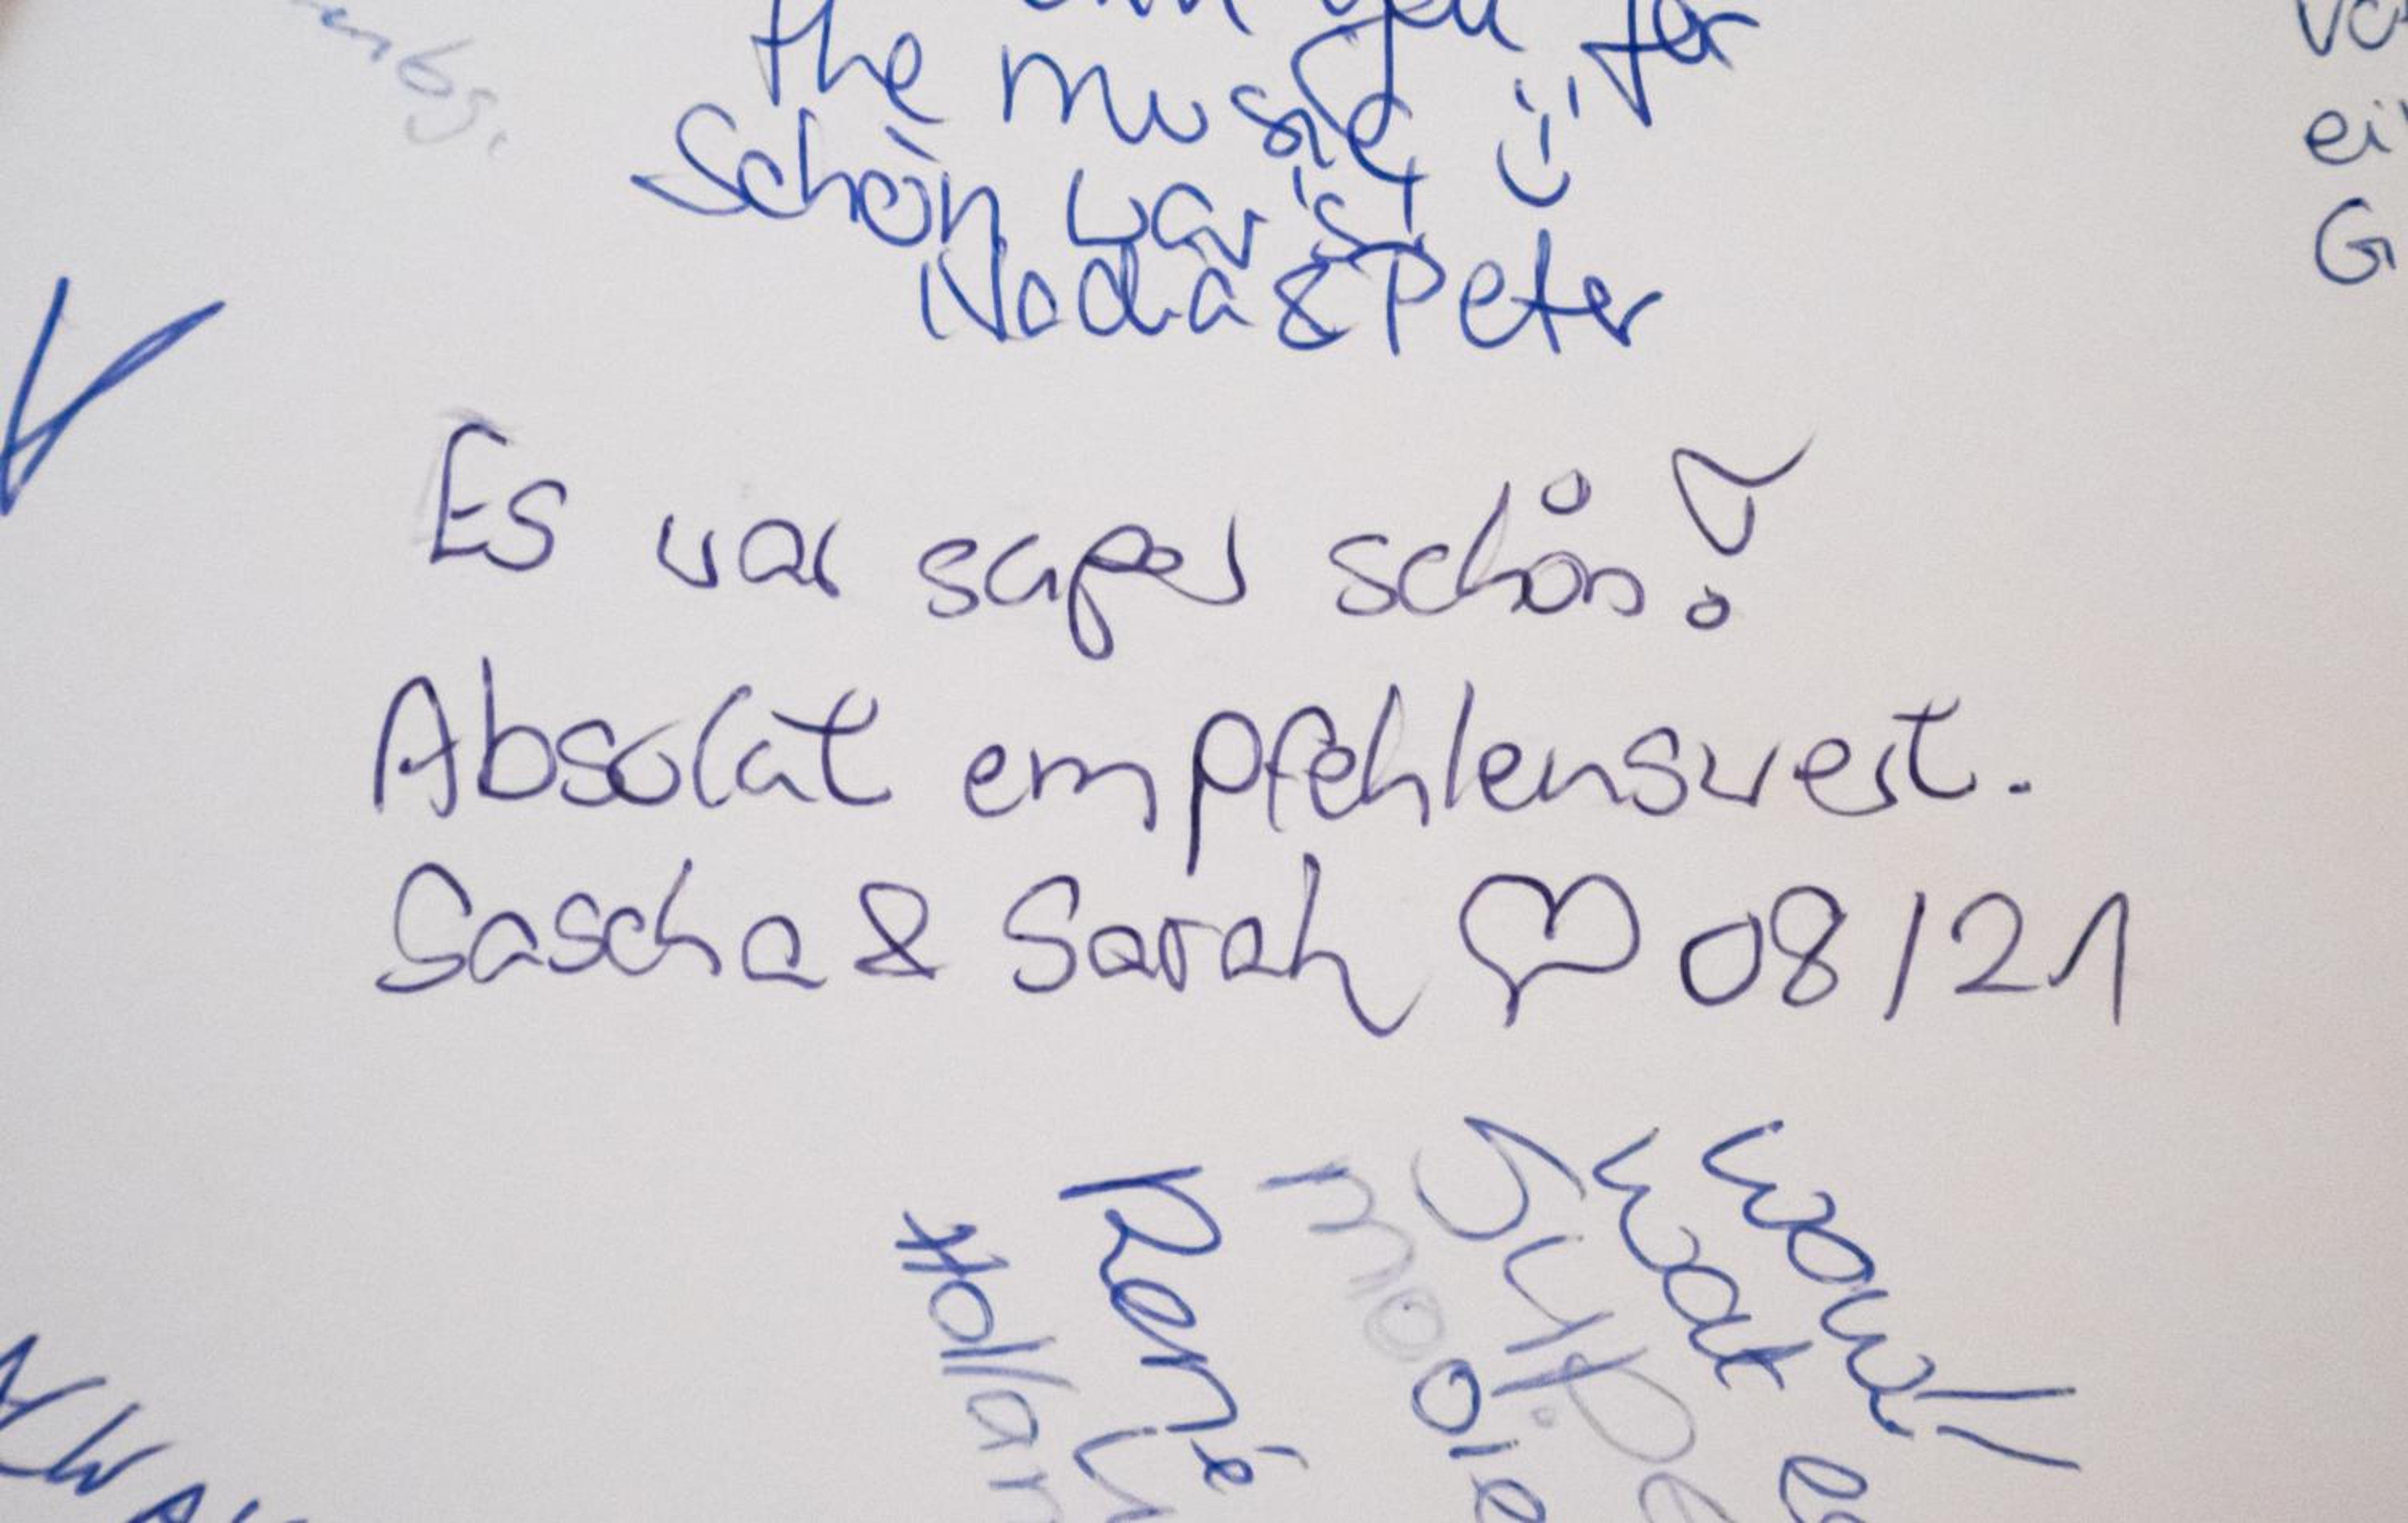 you for
the music
Schön war's!
Nadia & Peter
Es war super schön!
Absolut empfehlenswert.
Sascha & Sarah ♡ 08/21
Wow!!
wat
supe
mooie
René
Hollan